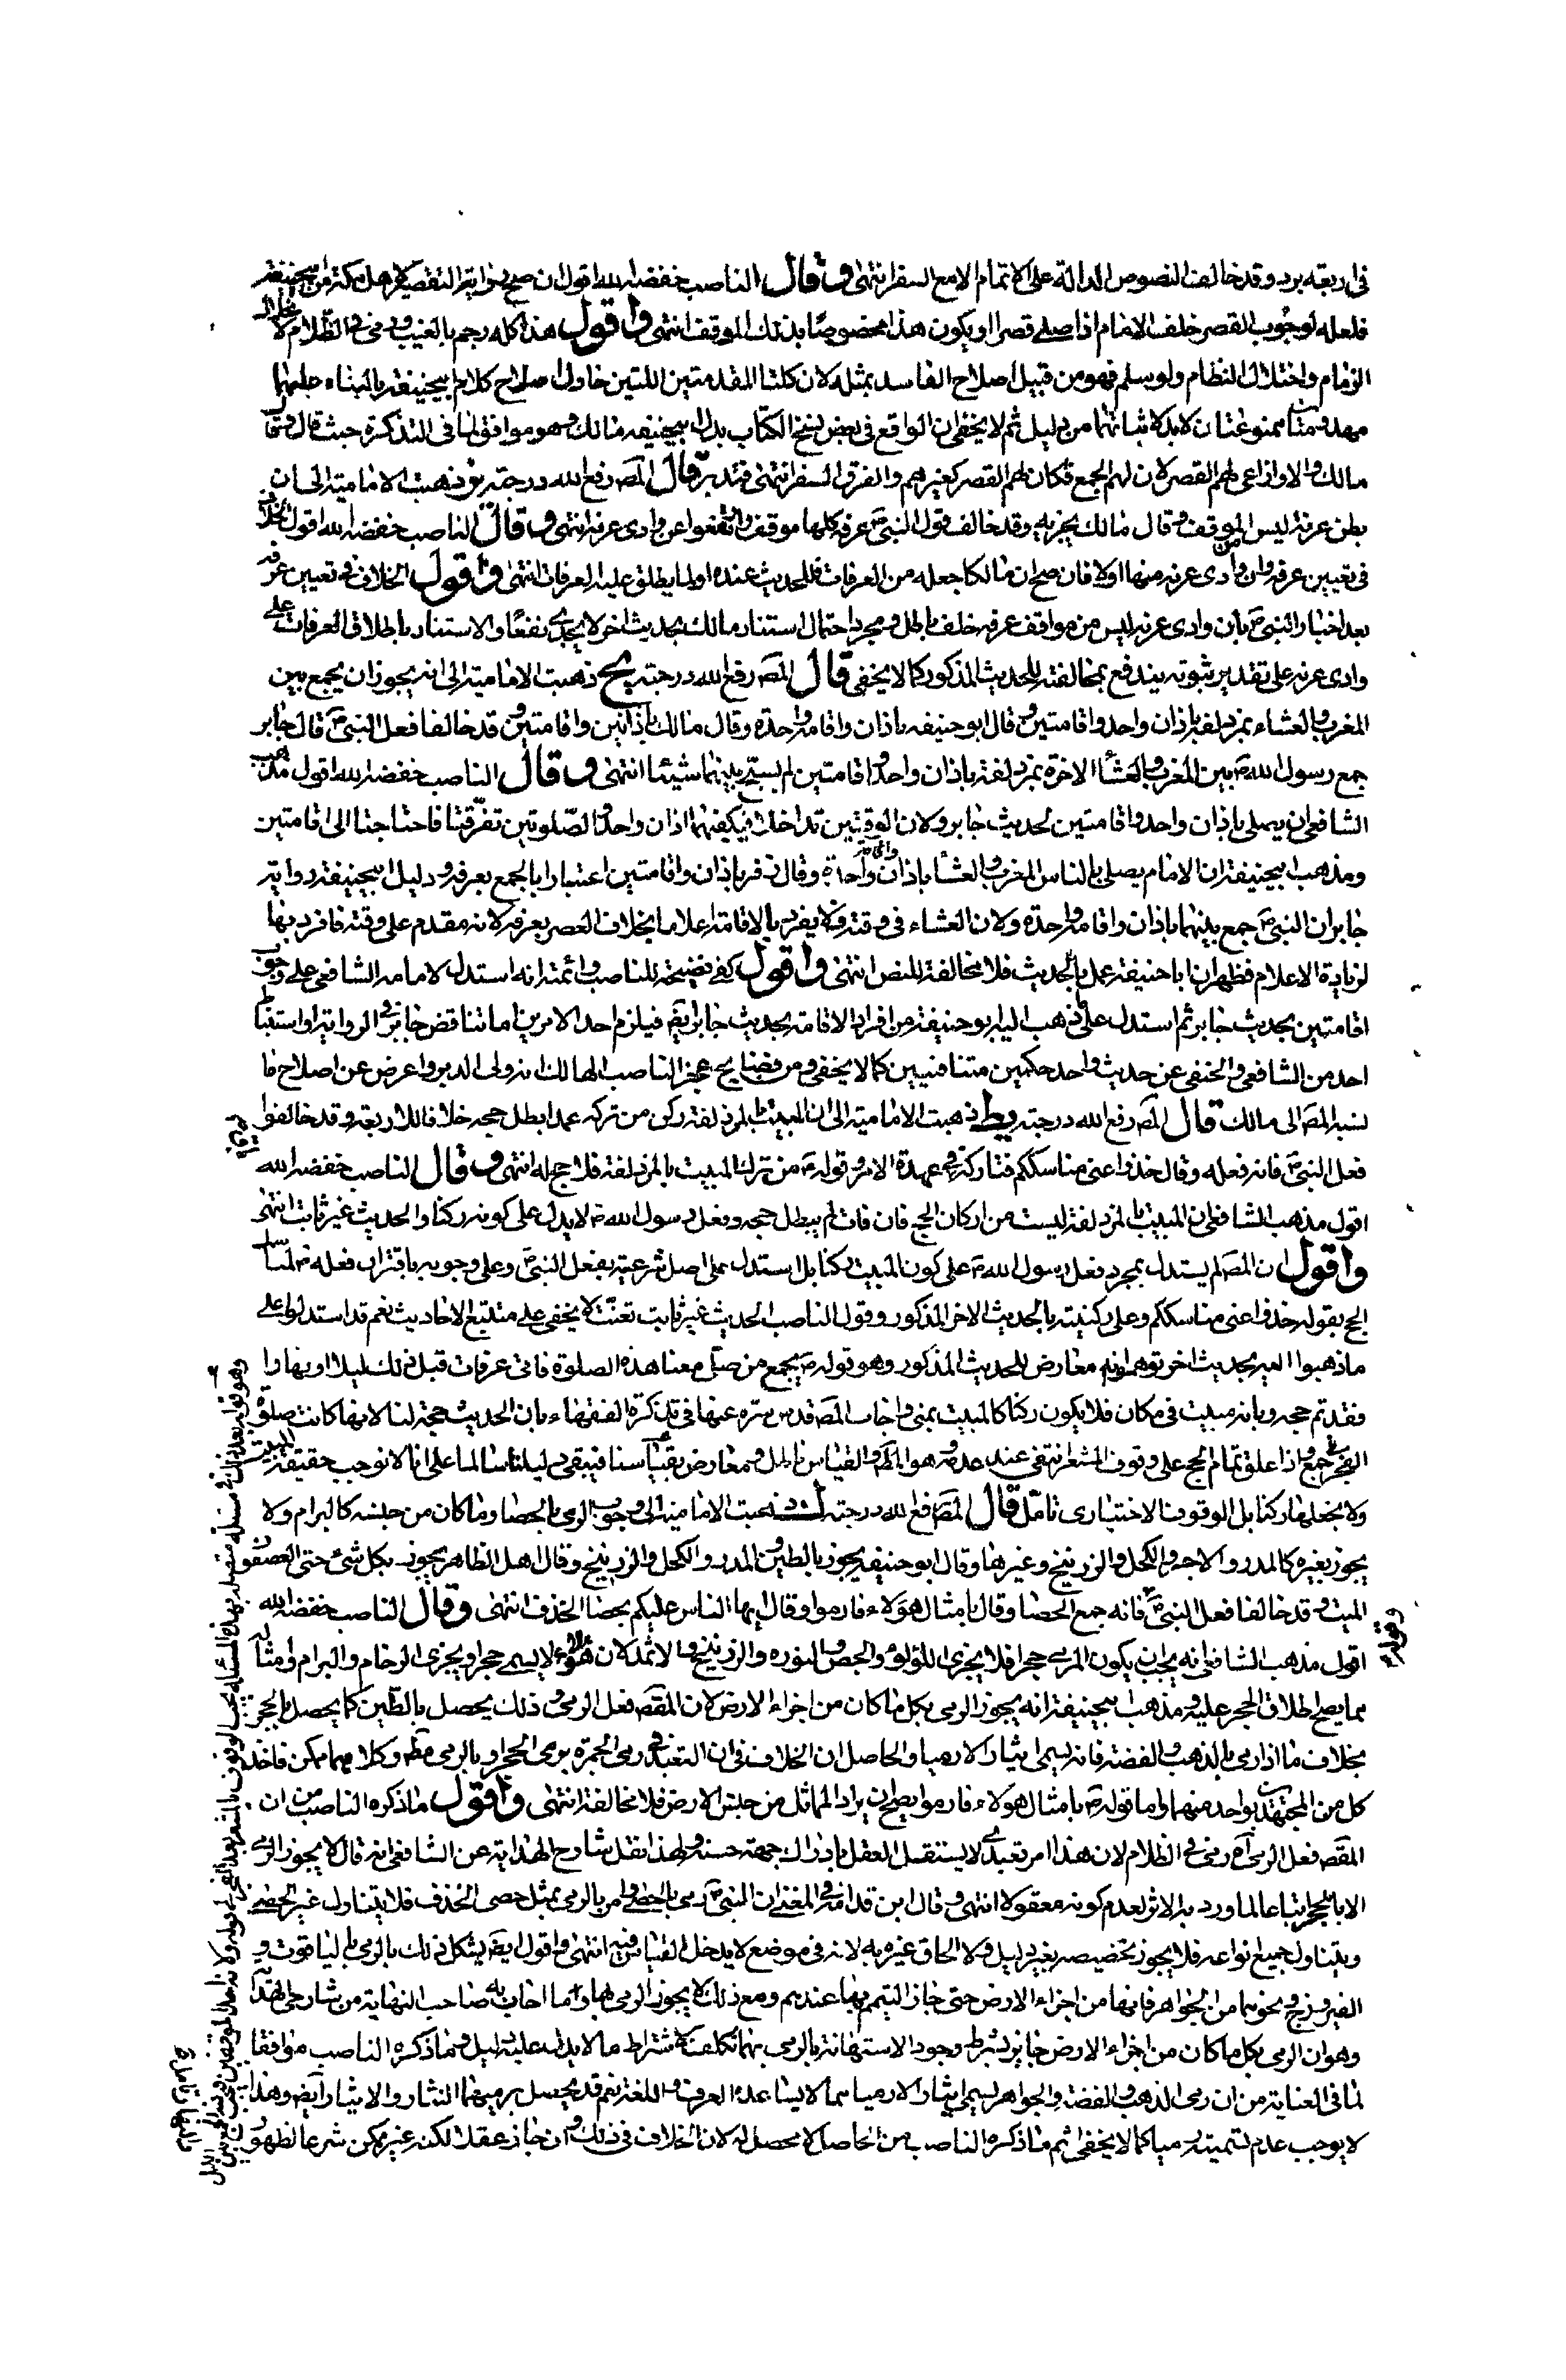 في اربعة برد وقد خالف النصوص الدالة على الاتمام الا مع السفر انتهى وقال الناصب خفضه الله اقول ان صح رواية التقصير لاهل مكة من ابيحنيفة
فلعله لوجوب القصر خلف الامام اذا صلى قصرا او يكون هذا مخصوصا بذلك الموقف انتهى واقول هذا كله رجم بالغيب ورمى في الظلام لانحلال
الزمام واختلال النظام ولو سلم فهو من قبيل اصلاح الفاسد بمثله لان كلتا المقدمتين اللتين حاول اصلاح كلام ابيحنيفة بالبناء عليهما
مهدومتان ممنوعتان لابد لاثباتهما من دليل ثم لا يخفى ان الواقع في بعض نسخ الكتاب بدل ابيحنيفه مالك وهو موافق لما في التذكرة حيث قال وقال
مالك والاوزاعي لهم القصر لان لهم الجمع فكان لهم القصر كغيرهم والفرق السفر انتهى فتدبر قال المص رفع الله درجته يز ذهبت الامامية الى ان
بطن عرنة ليس الموقف وقال مالك يجزيه وقد خالف قول النبي ص عرفه كلها موقف وارتفعوا عن وادى عرنه انتهى وقال الناصب خفضه الله اقول الخلاف
في تعيين عرفه وان وادى عرنه منها اولا فان صح ان مالكا جعله من العرفات فللحديث عنده او لما يطلق عليه العرفات انتهى واقول الخلاف في تعيين عرفه
بعد اخبار النبي ص بان وادى عرنه ليس من مواقف عرفه خلف باطل ومجرد احتمال استناد مالك بحديث اخر لا يجدى نفعا والاستناد باطلاق العرفات على
وادى عرنه على تقدير ثبوته يندفع بمخالفته للحديث المذكور كما لا يخفى قال المص رفع الله درجته يح ذهبت الامامية الى انه يجوز ان يجمع بين
المغرب والعشاء بمزدلفة باذان واحد واقامتين وقال ابو حنيفه باذان واقامة واحدة وقال مالك باذانين واقامتين وقد خالفا فعل النبي ص قال جابر
جمع رسول الله ص بين المغرب والعشاء الاخرة بمزدلفة باذان واحد واقامتين لم يسبح بينهما شيئا انتهى وقال الناصب خفضه الله اقول مذهب
الشافعي ان يصلى باذان واحد واقامتين لحديث جابر ولان الوقتين تداخلا فيكفيهما اذان واحد والصلوتين تفرقتا فاحتاجتا الى اقامتين
ومذهب ابيحنيفة ان الامام يصلى بالناس المغرب والعشاء باذان واقامة واحدة وقال زفر باذان واقامتين اعتبارا بالجمع بعرفه ودليل ابيحنيفة رواية
جابر ان النبي ص جمع بينهما باذان واقامة واحدة ولان العشاء في وقته فلا يفرد بالاقامة اعلاما بخلاف العصر بعرفه لانه مقدم على وقته فافرد بها
لزيادة الاعلام فظهر ان ابا حنيفة عمل بالحديث فلا مخالفة للنص انتهى واقول كفى فضيحة للناصب وائمته انه استدل لامامه الشافعي على وجوب
اقامتين بحديث جابر ثم استدل على ما ذهب اليه ابو حنيفة من افراد الاقامة بحديث جابر ايضا فيلزم احد الامرين اما تناقض جابر في الرواية او استنباط
احد من الشافعي والحنفي عن حديث واحد حكمين متنافيين كما لا يخفى ومن فضايح عجز الناصب الهالك انه ولى الدبر واعرض عن اصلاح ما
نسبه المص الى مالك قال المص رفع الله درجته يط ذهبت الامامية الى ان المبيت بالمزدلفة ركن من تركه عمدا بطل حجه خلافا للاربعة وقد خالفوا
فعل النبي ص فانه فعله وقال خذوا عنى مناسككم فتاركه في عهدة الامر وقوله ص من ترك المبيت بالمزدلفة فلا حج له انتهى وقال الناصب خفضه الله
اقول مذهب الشافعي ان المبيت بالمزدلفة ليست من اركان الحج فان فات لم يبطل حجه وفعل رسول الله ص لا يدل على كونه ركنا والحديث غير ثابت انتهى
واقول ان المص لم يستدل بمجرد فعل رسول الله ص على كون المبيت ركنا بل استدل على اصل شرعيته بفعل النبي ص وعلى وجوبه باقتران فعله ص لمناسك
الحج بقوله خذوا عنى مناسككم وعلى ركنيته بالحديث الاخر المذكور وقول الناصب الحديث غير ثابت تعنت لا يخفى على متتبع الاحاديث نعم قد استدلوا على
ما ذهبوا اليه بحديث اخر توهموا انه معارض للحديث المذكور وهو قوله ص بجمع من صلى معنا هذه الصلوة فاتى عرفات قبل ذلك ليلا او نهارا
فقد تم حجه وبانه مبيت في مكان فلا يكون ركنا كالمبيت بمنى واجاب المص قدس سره عنها في تذكرة الفقهاء بان الحديث حجة لنا لانها كانت صلوة
الفجر في جمع واذا علق تمام الحج على وقوف المشعر انتفى عند عدمه وهو المط والقياس باطل ومعارض بقياسنا فيبقى دليلنا سالما على انا لا نوجب حقيقة المبيت
ولا نجعلها ركنا بل الوقوف الاختيارى تامل قال المص رفع الله درجته ك ذهبت الامامية الى وجوب الرمى بالحصا وما كان من جنسه كالبرام ولا
يجوز بغيره كالمدر والاجر والكحل والزرنيخ وغيرها وقال ابو حنيفه يجوز بالطين والمدر والكحل والزرنيخ وقال اهل الظاهر يجوز بكل شئ حتى العصفور
الميت وقد خالفا فعل النبي ص فانه جمع الحصا وقال بامثال هؤلاء فارموا وقال ايها الناس عليكم بحصا الخذف انتهى وقال الناصب خفضه الله
اقول مذهب الشافعي انه يجب ان يكون المرمى حجرا فلا يجزى اللؤلؤ والجص والنوره والزرنيخ والاثمد لان هؤلاء لا يسمى حجرا ويجزى الرخام والبرام وامثاله
مما يصح اطلاق الحجر عليه ومذهب ابيحنيفة انه يجوز الرمى بكل ما كان من اجزاء الارض لان المقصد فعل الرمى وذلك يحصل بالطين كما يحصل بالحجر
بخلاف ما اذا رمى بالذهب والفضة فانه يسمى نثارا لا رميا والحاصل ان الخلاف في ان التعبد في رمى الجمرة برمى الحجر او بالرمى مط وكلاهما ممكن فاخذ
كل من المجتهدين بواحد منهما واما قوله ص بامثال هؤلاء فارموا يصلح ان يراد المماثل من جنس الارض فلا مخالفة انتهى واقول ما ذكره الناصب من ان
المقصد فعل الرمى آه رمى في الظلام لان هذا امر تعبدى لا يستقل العقل بادراك جهة حسنه ولهذا نقل شارح الهداية عن الشافعي انه قال لا يجوز الرمى
الا بالحجر اتباعا لما ورد به الاثر لعدم كونه معقولا انتهى وقال ابن قدامة في المغنى ان النبي ص رمى بالحصا وامر بالرمى بمثل حصى الخذف فلا يتناول غير الحصى
ويتناول جميع انواعه فلا يجوز تخصيصه بغير دليل ولا الحاق غيره به لانه في موضع لا يدخل القياس فيه انتهى واقول ايضا يشكل ذلك بالرمى بالياقوت و
الفيروزج ونحوهما من الجواهر فانها من اجزاء الارض حتى جاز التيمم بها عندهم ومع ذلك لا يجوز الرمى بها واما اجاب به صاحب النهاية من شارحى الهداية
وهو ان الرمى بكل ما كان من اجزاء الارض جايز بشرط وجود الاستهانة بالرمى بهما تكلف لاشتراط ما لا يدل عليه دليل وما ذكره الناصب موافقا
لما في العناية من ان رمى الذهب والفضة والجواهر يسمى نثارا لا رميا مما لا يساعده العرف واللغة نعم قد يحصل برميها النثار والايثار ايضا وهذا
لا يوجب عدم تسميته رميا كما لا يخفى ثم ما ذكره الناصب من الحاصل لا محصل له لان الخلاف في ذلك وان جاز عقلا لكنه غير ممكن شرعا لظهور